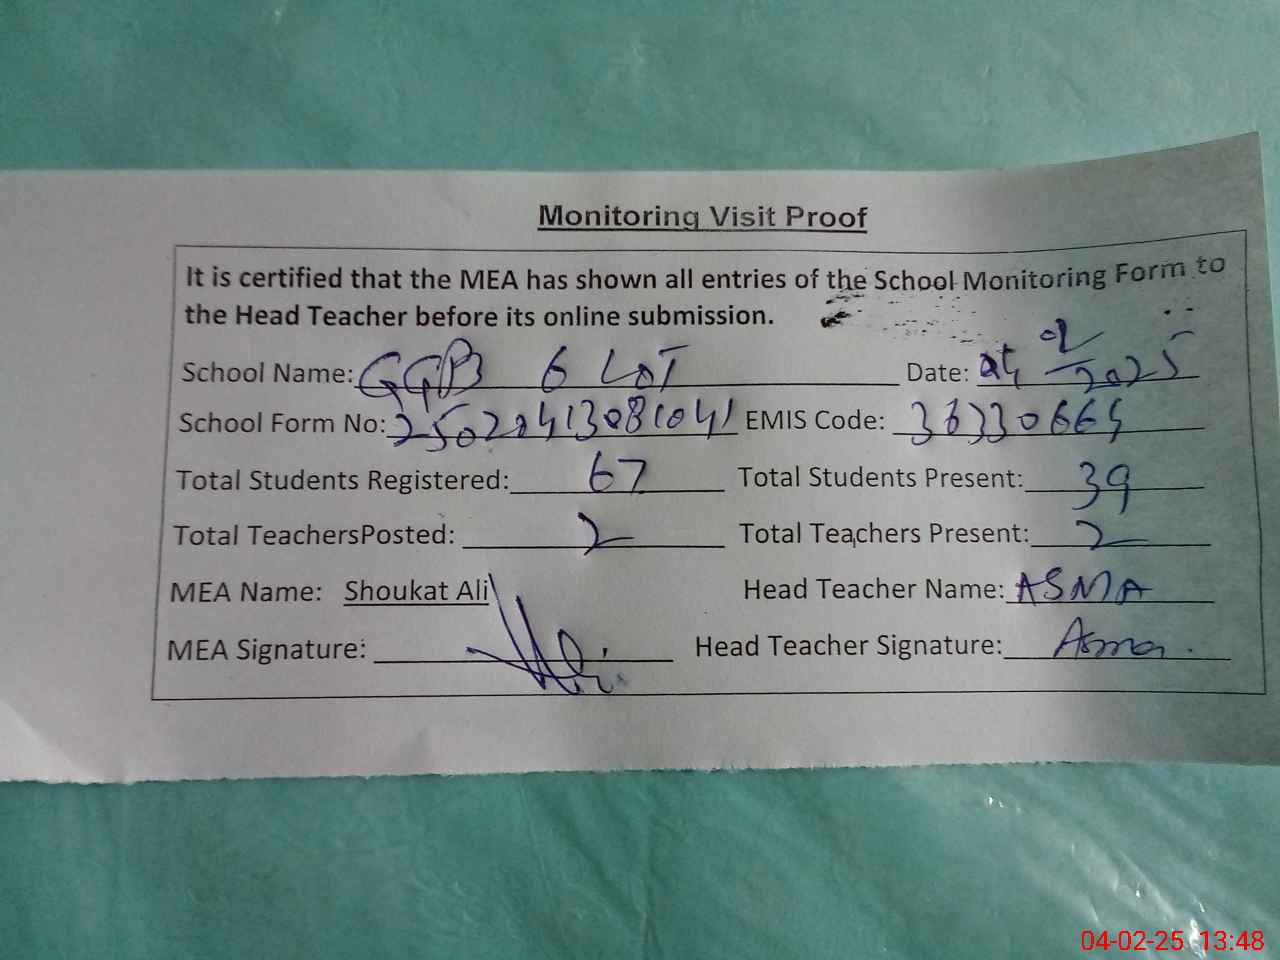 Monitoring Visit Proof
It is certified that the MEA has shown all entries of the School Monitoring Form to
the Head Teacher before its online submission.
School Name: GGPS 6 LOT Date: 04/02/2025
School Form No: EMIS Code:
Total Students Registered: 67 Total Students Present: 39
Total TeachersPosted: 2 Total Teachers Present: 2
MEA Name: Shoukat Ali Head Teacher Name: ASMA
MEA Signature: Head Teacher Signature: Asma.
04-02-25 13:48